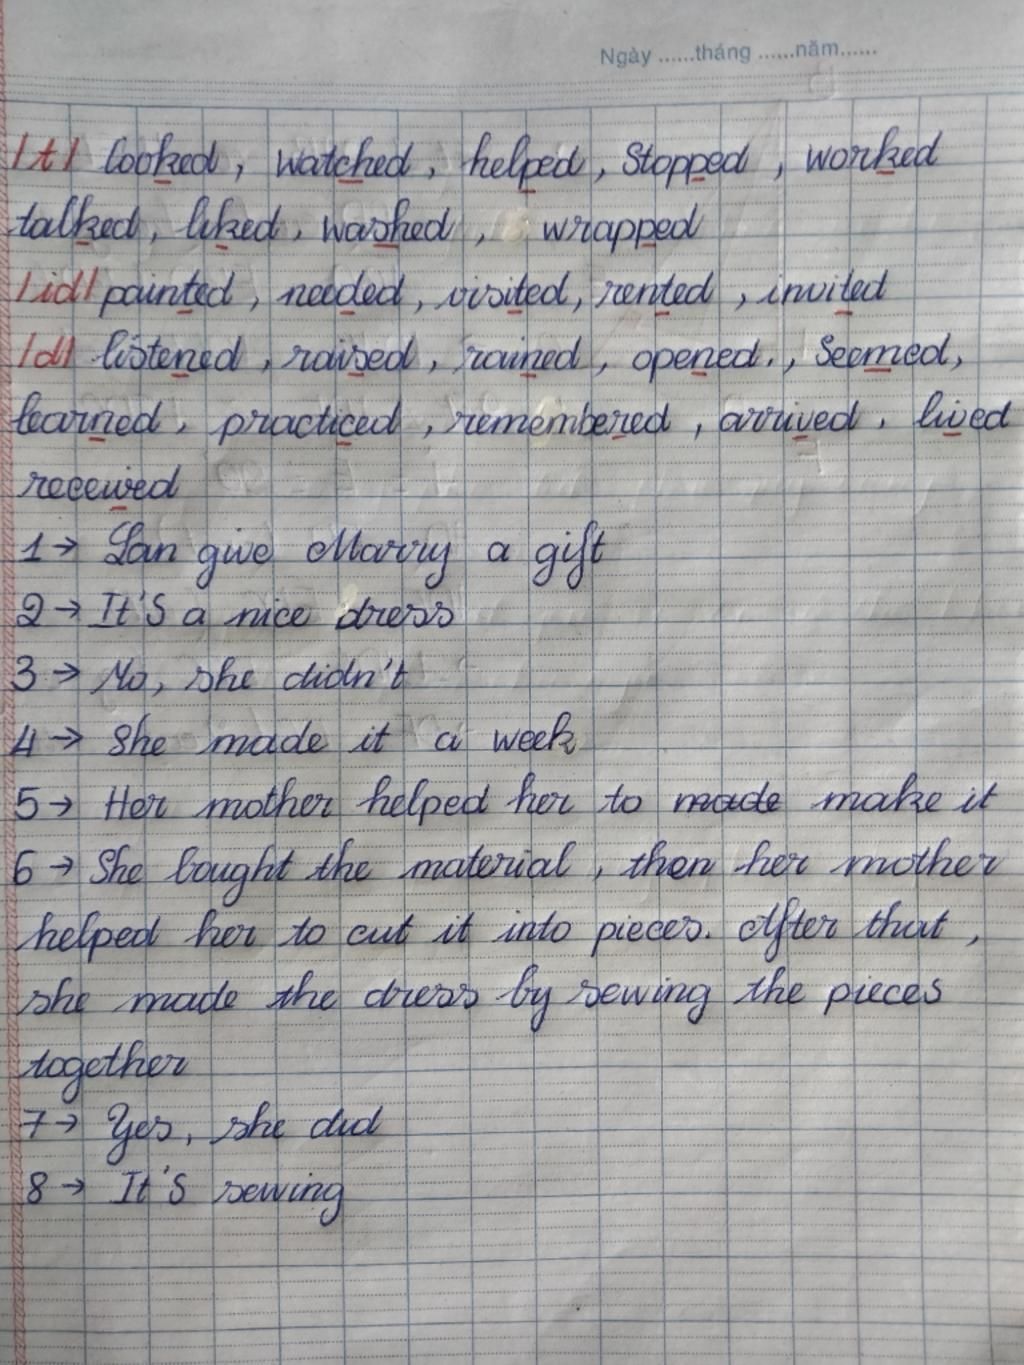 Ngày ......tháng ......năm......
/t/ looked, watched, helped, Stopped, worked
talked, liked, washed, wrapped
/id/ painted, needed, visited, rented, invited
/d/ listened, raised, rained, opened., Seemed,
learned, practiced, remembered, arrived, lived
received
1→ Lan give Marry a gift
2→ It'S a nice dress
3→ No, she didn't
4→ She made it a week
5→ Her mother helped her to made make it
6→ She bought the material, then her mother
helped her to cut it into pieces. After that,
she made the dress by sewing the pieces
together
7→ Yes, she did
8→ It'S sewing